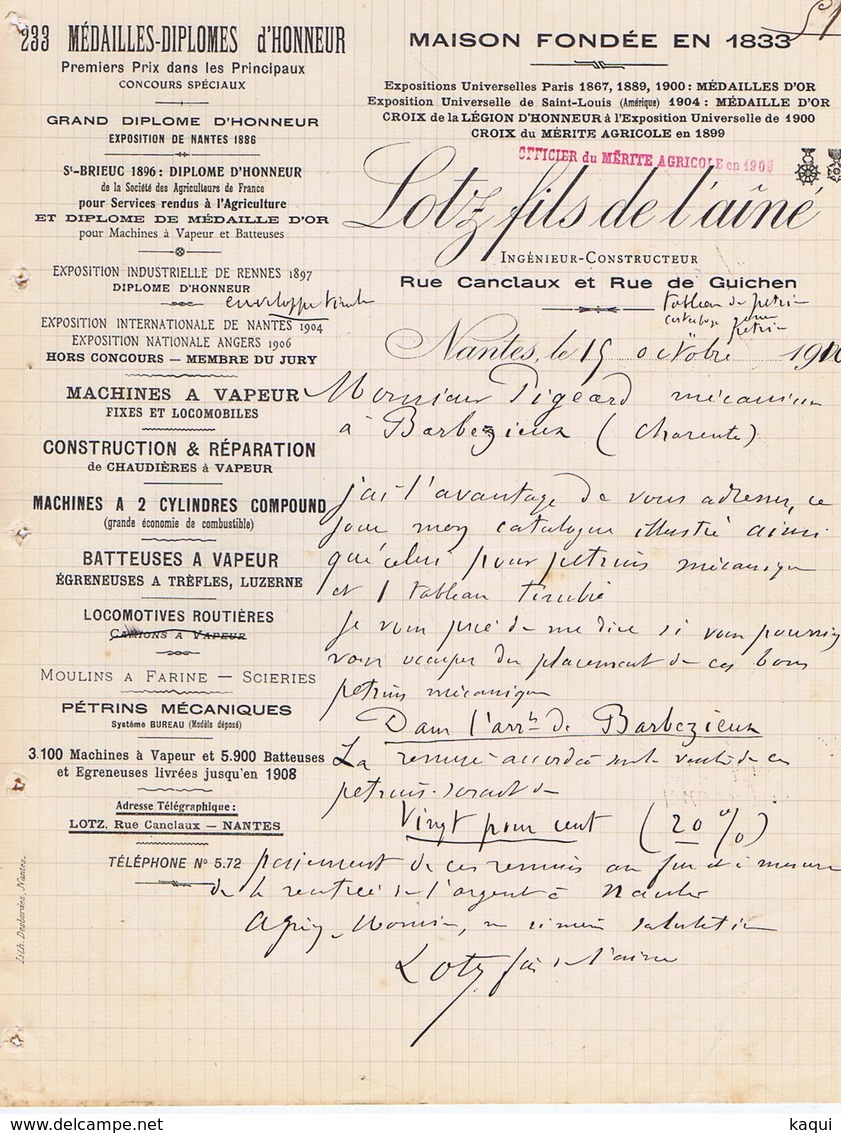 233 MÉDAILLES-DIPLOMES d'HONNEUR
Premiers Prix dans les Principaux
CONCOURS SPÉCIAUX
GRAND DIPLOME D'HONNEUR
EXPOSITION DE NANTES 1886
St-BRIEUC 1896 : DIPLOME D'HONNEUR
de la Société des Agriculteurs de France
pour Services rendus à l'Agriculture
ET DIPLOME DE MÉDAILLE D'OR
pour Machines à Vapeur et Batteuses
EXPOSITION INDUSTRIELLE DE RENNES 1897
DIPLOME D'HONNEUR
enveloppe timbrée
EXPOSITION INTERNATIONALE DE NANTES 1904
EXPOSITION NATIONALE ANGERS 1906
HORS CONCOURS — MEMBRE DU JURY
MACHINES A VAPEUR
FIXES ET LOCOMOBILES
CONSTRUCTION & RÉPARATION
de CHAUDIÈRES à VAPEUR
MACHINES A 2 CYLINDRES COMPOUND
(grande économie de combustible)
BATTEUSES A VAPEUR
ÉGRENEUSES A TRÈFLES, LUZERNE
LOCOMOTIVES ROUTIÈRES
CAMIONS A VAPEUR
MOULINS A FARINE — SCIERIES
PÉTRINS MÉCANIQUES
Système BUREAU (Modèle déposé)
3.100 Machines à Vapeur et 5.900 Batteuses
et Egreneuses livrées jusqu'en 1908
Adresse Télégraphique :
LOTZ, Rue Canclaux — NANTES
TÉLÉPHONE No 5.72
Lith. Desbordes, Nantes.
MAISON FONDÉE EN 1833
Expositions Universelles Paris 1867, 1889, 1900 : MÉDAILLES D'OR
Exposition Universelle de Saint-Louis (Amérique) 1904 : MÉDAILLE D'OR
CROIX de la LÉGION D'HONNEUR à l'Exposition Universelle de 1900
CROIX du MÉRITE AGRICOLE en 1899
OFFICIER du MÉRITE AGRICOLE en 1909
Lotz fils de l'aîné
INGÉNIEUR-CONSTRUCTEUR
Rue Canclaux et Rue de Guichen
tableau de petrin
catalogue pour
petrin
Nantes, le 15 octobre 1910
Monsieur Pigeard mécanicien
à Barbezieux (Charente)
j'ai l'avantage de vous adresser, ce
jour mon catalogue illustré ainsi
que celui pour petrins mécanique
et 1 tableau timbré
Je vous prie de me dire si vous pourriez
vous occuper du placement de ces bons
petrins mécanique
Dans l'arrt de Barbezieux
La remise accordée sur la vente de ces
petrins serait de
Vingt pour cent (20 %)
paiement de ces remises au fur et à mesure
de la rentrée de l'argent à Nantes
Agréez, Monsieur, mes sincères salutations
Lotz fils de l'aîné
kaqui